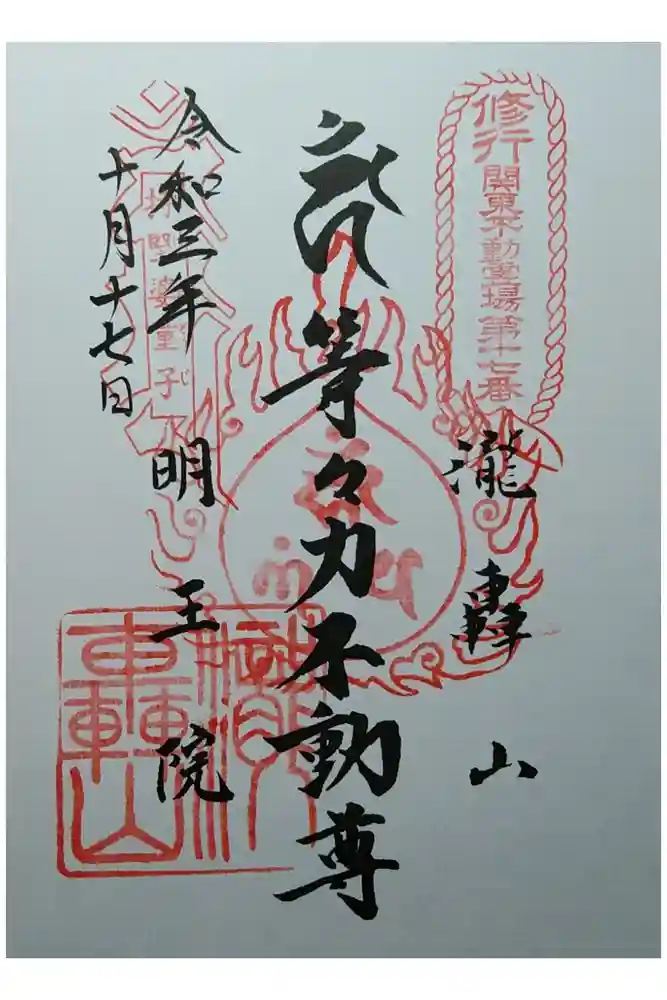 修行
関東不動霊場第十七番
瀧轟山
等々力不動尊
明王院
令和三年
十月十七日
堅婆童子
轟山